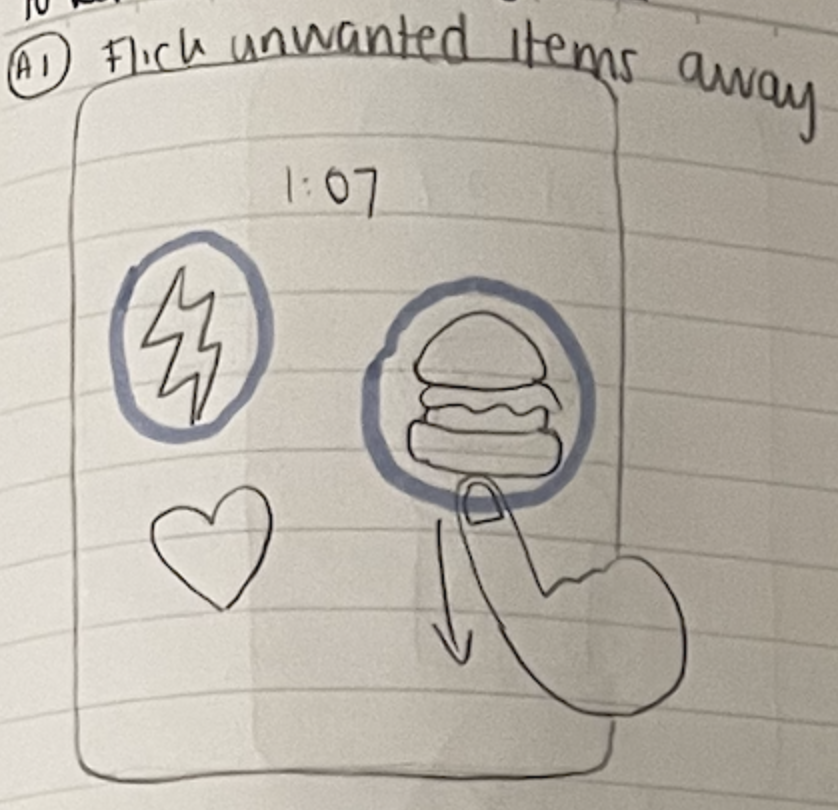 A1 Flick unwanted items away
1:07